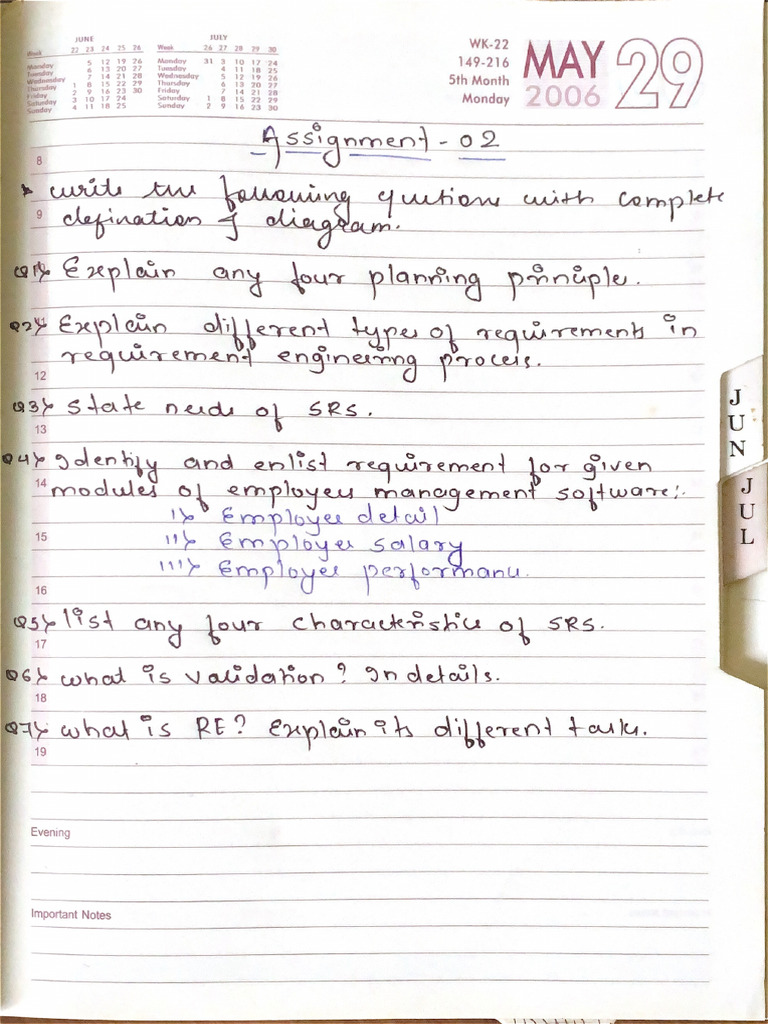 JUNE
Week 22 23 24 25 26
Monday 5 12 19 26
Tuesday 6 13 20 27
Wednesday 7 14 21 28
Thursday 1 8 15 22 29
Friday 2 9 16 23 30
Saturday 3 10 17 24
Sunday 4 11 18 25
JULY
Week 26 27 28 29 30
Monday 31 3 10 17 24
Tuesday 4 11 18 25
Wednesday 5 12 19 26
Thursday 6 13 20 27
Friday 7 14 21 28
Saturday 1 8 15 22 29
Sunday 2 9 16 23 30
WK-22
149-216
5th Month
Monday
MAY
2006
29
Assignment - 02
8
* write the following qutions with complete
9
defination & diagram.
Q1> Explain any four planning principle.
Q2> Explain different types of requirements in
requirement engineering process.
12
Q3> State needs of SRS.
13
Q4> Identify and enlist requirement for given
14
modules of employee management software:.
i> Employee detail
15
ii> Employee salary
iii> Employee performance.
16
Q5> list any four characteristics of SRS.
17
Q6> what is validation? In details.
18
Q7> what is RE? Explain its different tasks.
19
Evening
Important Notes
JUN
JUL